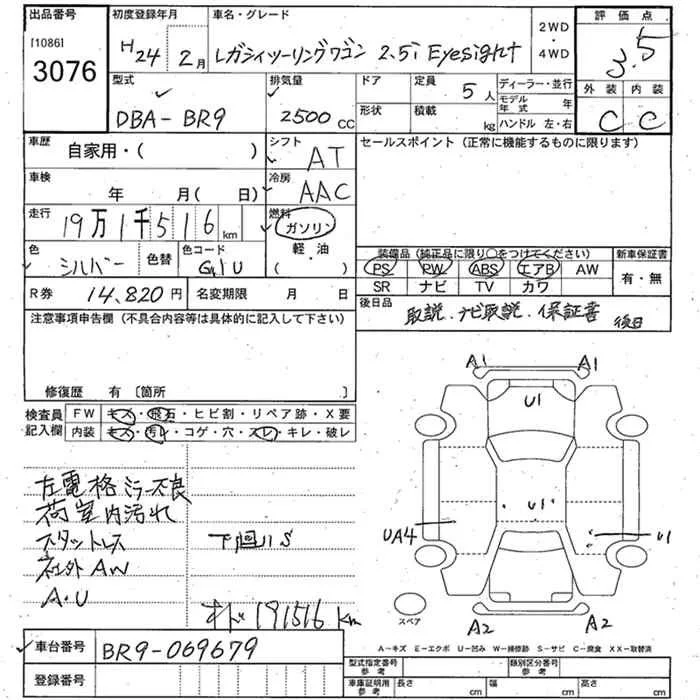 出品番号 初度登録年月 車名・グレード 2WD・4WD 評価点
[1086] 3076 H24 2月 レガシィツーリングワゴン 2.5i Eyesight 3.5
型式 排気量 ドア 定員 ディーラー・並行 外装 内装
DBA-BR9 2500cc 5人 モデル年式 年 C C
形状 積載 kg ハンドル 左・右
車歴 自家用・( ) シフト AT セールスポイント(正常に機能するものに限ります)
車検 年 月( 日) 冷房 AAC
走行 19万1千516km 燃料 ガソリン
色 シルバー 色替 色コード G1U 軽・油 ( )
装備品(純正品に限り○をつけてください) 新車保証書
PS PW ABS エアB AW 有・無
SR ナビ TV カワ
R券 14,820円 名変期限 月 日 後日品 取説、ナビ取説、保証書 後日
注意事項申告欄(不具合内容等は具体的に記入して下さい)
修復歴 有〔箇所 〕
検査員記入欄 FW キズ・飛石・ヒビ割・リペア跡・X要
内装 キズ・汚れ・コゲ・穴・スレ・キレ・破レ
A1 A1
U1
U1
UA4 U1
A2 A2
スペア
左電格ミラー不良
荷室内汚れ
スタットレス 下廻りS
社外AW
A.U
オド 191516 km
A-キズ E-エクボ U-凹み W-補修跡 S-サビ C-腐食 XX-取替済
車台番号 BR9-069679
登録番号
型式指定番号 参考 類別区分番号 参考
車庫証明用 参考 長さ cm 幅 cm 高さ cm